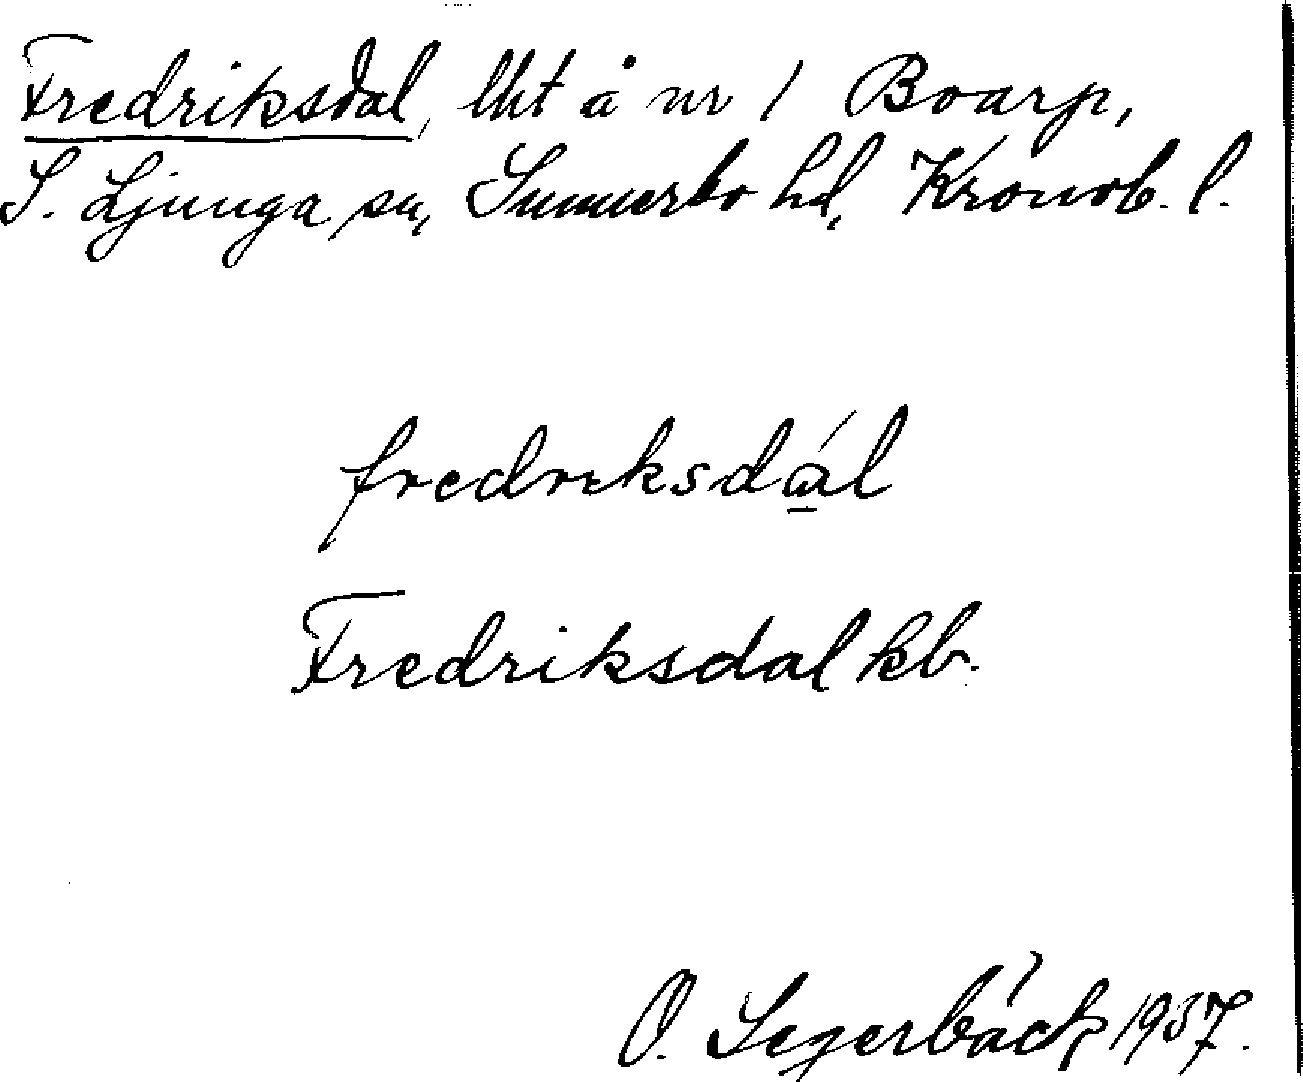 Fredriksdal, lht å nr 1 Boarp,
S. Ljunga sn, Sunnerbo hd, Kronob. l.
fredriksdá̱l
Fredriksdal kb.
O. Segerbäck 1937.